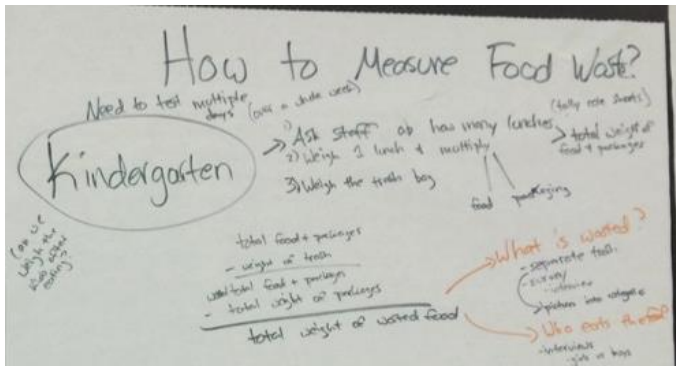 How to Measure Food Waste?
Need to test multiple
days (over a whole week)
Kindergarten
1) Ask staff how many lunches
(tally sheets)
2) Weigh 1 lunch & multiply
> total weight of
food + packages
3) Weigh the trash bag
food packaging
Can we
weigh the
after
eating?
total food + packages
- weight of trash
total food + packages
- total weight of packages
total weight of wasted food
What is wasted?
- separate trash
- survey
- interview
Who eats the food?
- interviews
- girls vs boys